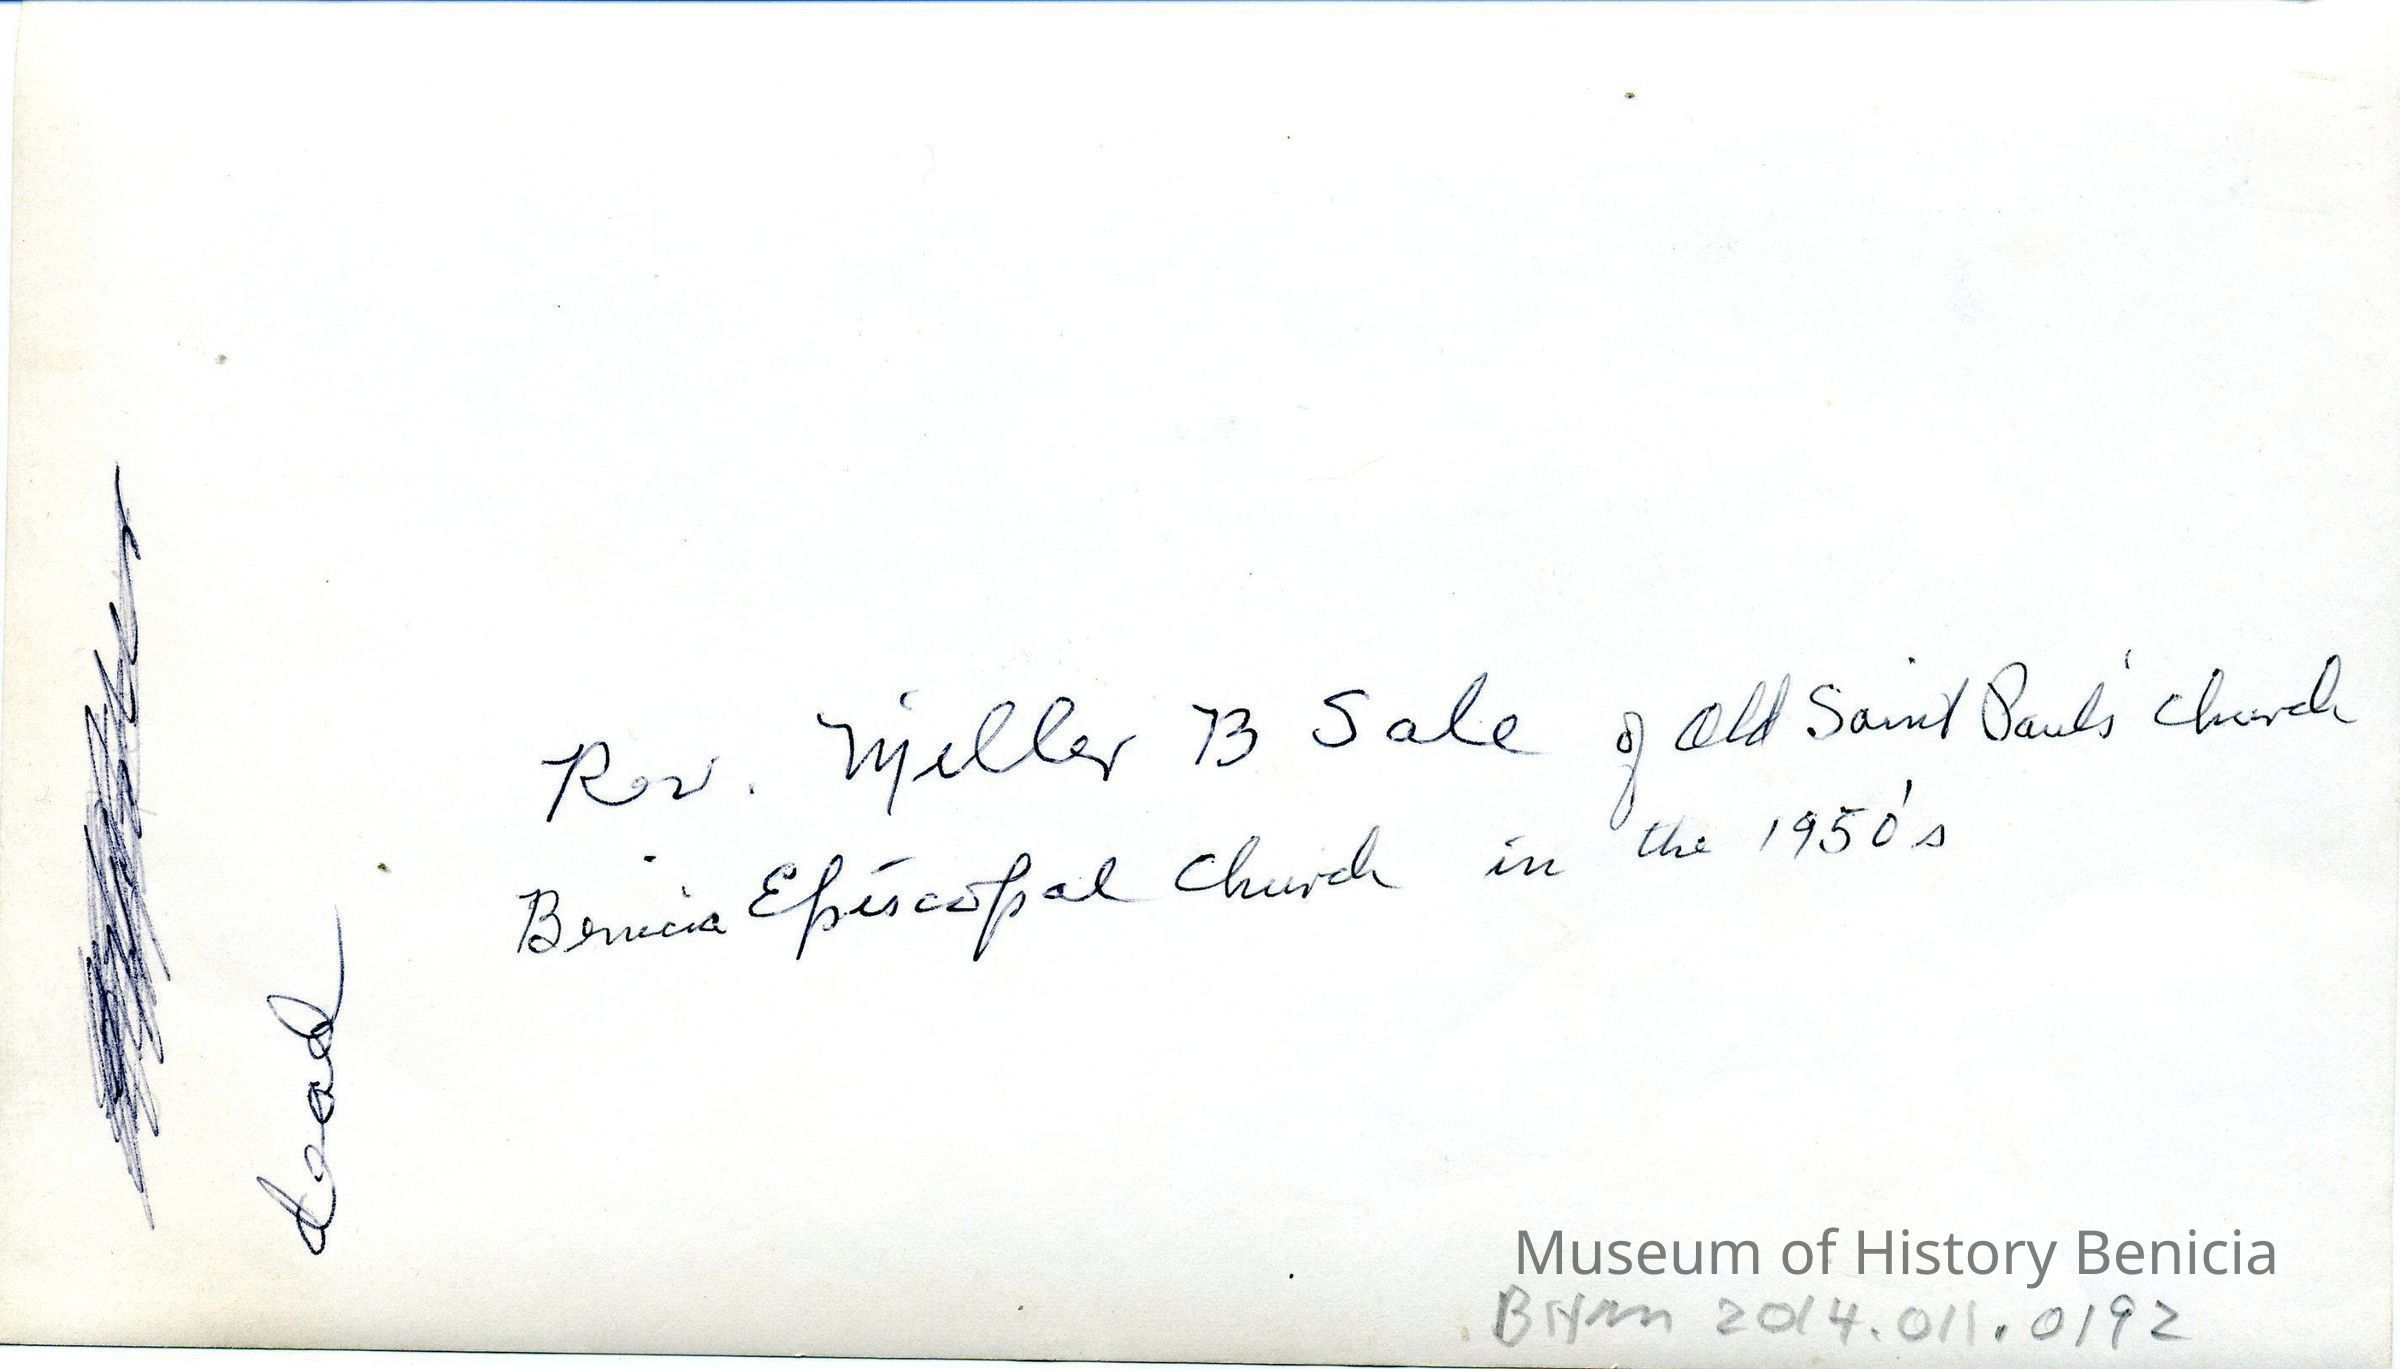 Rev. Miller B Sale of Old Saint Pauls' Church
Benicia Episcopal Church in the 1950's
dead
Museum of History Benicia
BHM 2014.011.0192